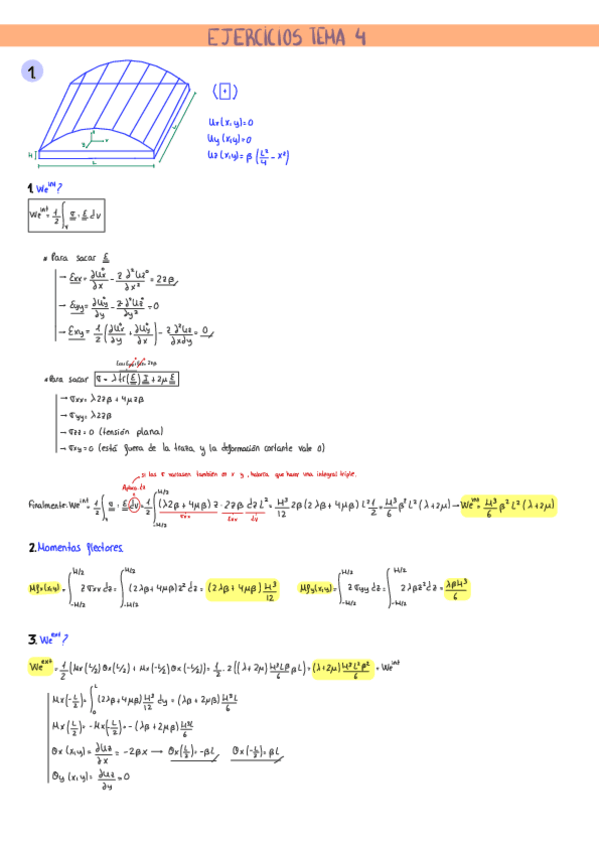 EJERCICIOS TEMA 4
1.
Ux(x,y)=0
Uy(x,y)=0
Uz(x,y)= β (L²/4 - x²)
H
L
L
1. We^int?
We^int = 1/2 ∫_V σ · ε dV
Para sacar ε
→ εxx = ∂Ux°/∂x - z ∂²Uz°/∂x² = 2zβ
→ εyy = ∂Uy°/∂y - z ∂²Uz°/∂y² = 0
→ εxy = 1/2 (∂Ux°/∂y + ∂Uy°/∂x) - z ∂²Uz/∂x∂y = 0
Para sacar σ = λ tr(ε) I + 2μ ε
→ σxx = λ2zβ + 4μzβ
→ σyy = λ2zβ
→ σzz = 0 (tensión plana)
→ σxy = 0 (está fuera de la traza, y la deformación cortante vale 0)
si las σ variasen también en x y, habría que hacer una integral triple.
Finalmente: We^int = 1/2 ∫_V σ · ε dV = 1/2 ∫_-H/2^H/2 (λ2β + 4μβ) z · 2zβ dz L² = H³/12 2β (2λβ + 4μβ) L² 1/2 = H³/6 β² L² (λ+2μ) → We^int = H³/6 β² L² (λ+2μ)
σxx εxx dV
2. Momentos flectores.
Mfx(x,y) = ∫_-H/2^H/2 z σxx dz = ∫_-H/2^H/2 (2λβ + 4μβ) z² dz = (2λβ + 4μβ) H³/12 Mfy(x,y) = ∫_-H/2^H/2 z σyy dz = ∫_-H/2^H/2 2λβz² dz = λβH³/6
3. We^ext?
We^ext = 1/2 (Mx(L/2) Θx(L/2) + Mx(-L/2) Θx(-L/2)) = 1/2 · 2 ((λ+2μ) H³Lβ/6 βL) = (λ+2μ) H³L²β²/6 = We^int
Mx(-L/2) = ∫_0^L (2λβ + 4μβ) H³/12 dy = (λβ + 2μβ) H³L/6
Mx(L/2) = -Mx(-L/2) = -(λβ + 2μβ) H³L/6
Θx(x,y) = ∂Uz/∂x = -2βx → Θx(L/2) = -βL Θx(-L/2) = βL
Θy(x,y) = ∂Uz/∂y = 0